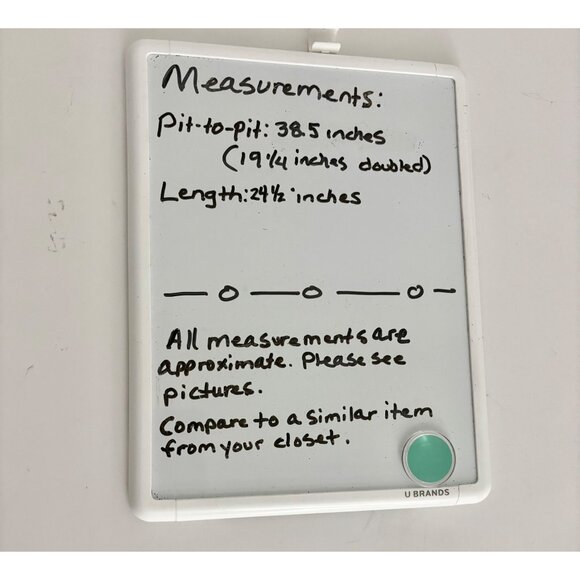 Measurements:
Pit-to-pit: 38.5 inches
(19 1/4 inches doubled)
Length: 24 1/2 inches
All measurements are
approximate. Please see
pictures.
Compare to a similar item
from your closet.
U BRANDS